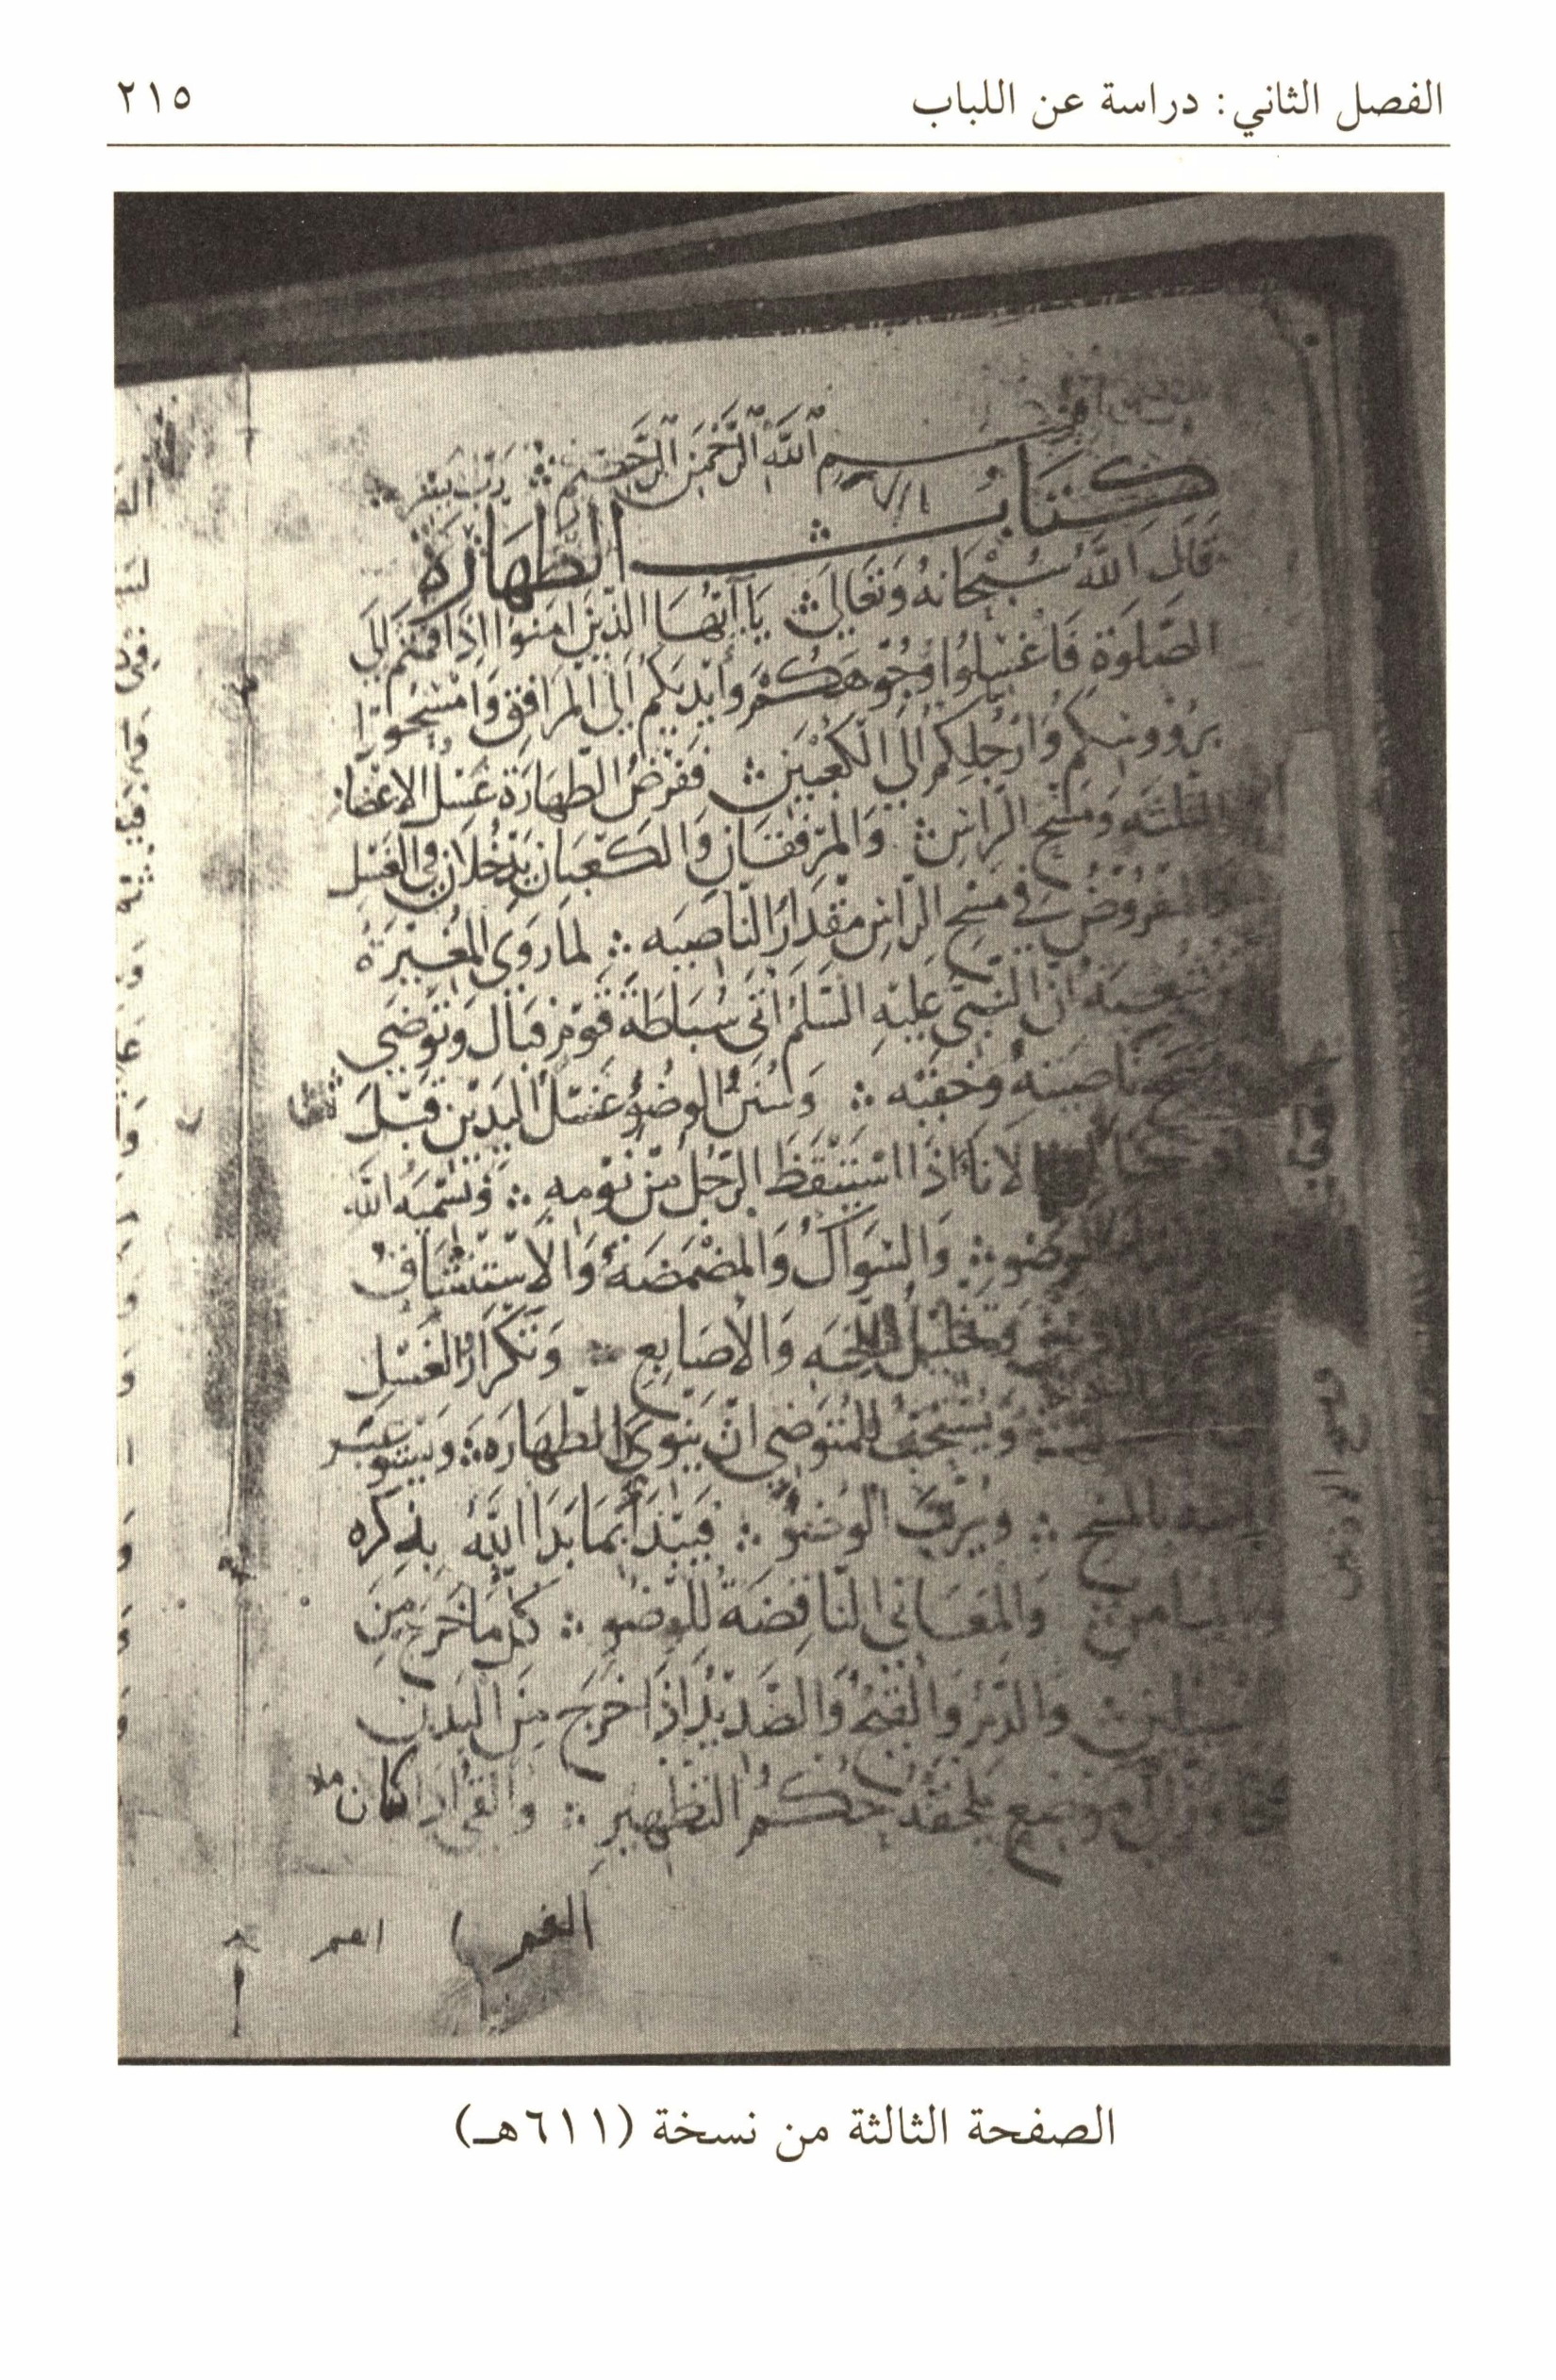 الفصل الثاني: دراسة عن اللباب
٢١٥
بسم الله الرحمن الرحيم رب يسر
كتاب الطهارة
قال الله سبحانه وتعالى يا ايها الذين امنوا اذا قمتم الى
الصلوة فاغسلوا وجوهكم وايديكم الى المرافق وامسحوا
برووسكم وارجلكم الى الكعبين ففرض الطهارة غسل الاعضا
الثلثه ومسح الراس والمرفقان والكعبان يدخلان في الغسل
والمفروض في مسح الراس مقدار الناصيه لما روى المغيرة
شعبه ان النبي عليه السلم اتى سباطة قوم فبال وتوضى
ومسح ناصيته وخفيه وسنن الوضوء غسل اليدين قبل
الاناء اذا استيقظ الرجل من نومه وتسميه الله
الوضو والسواك والمضمضة والاستنشاق
وتخليل اللحيه والاصابع وتكرار الغسل
ويستحب للمتوضي ان ينوي الطهارة ويستوعب
بالمسح ويرتب الوضو فيبدأ بما بدا الله بذكره
والمعاني الناقضة للوضو كل ما خرج من
السبيلين والدم والقيح والصديد اذا خرج من البدن
موضع يلحقه حكم التطهير والقي اذا كان ملا
الفم
ومسح الاذنين
الصفحة الثالثة من نسخة (٦١١هـ)